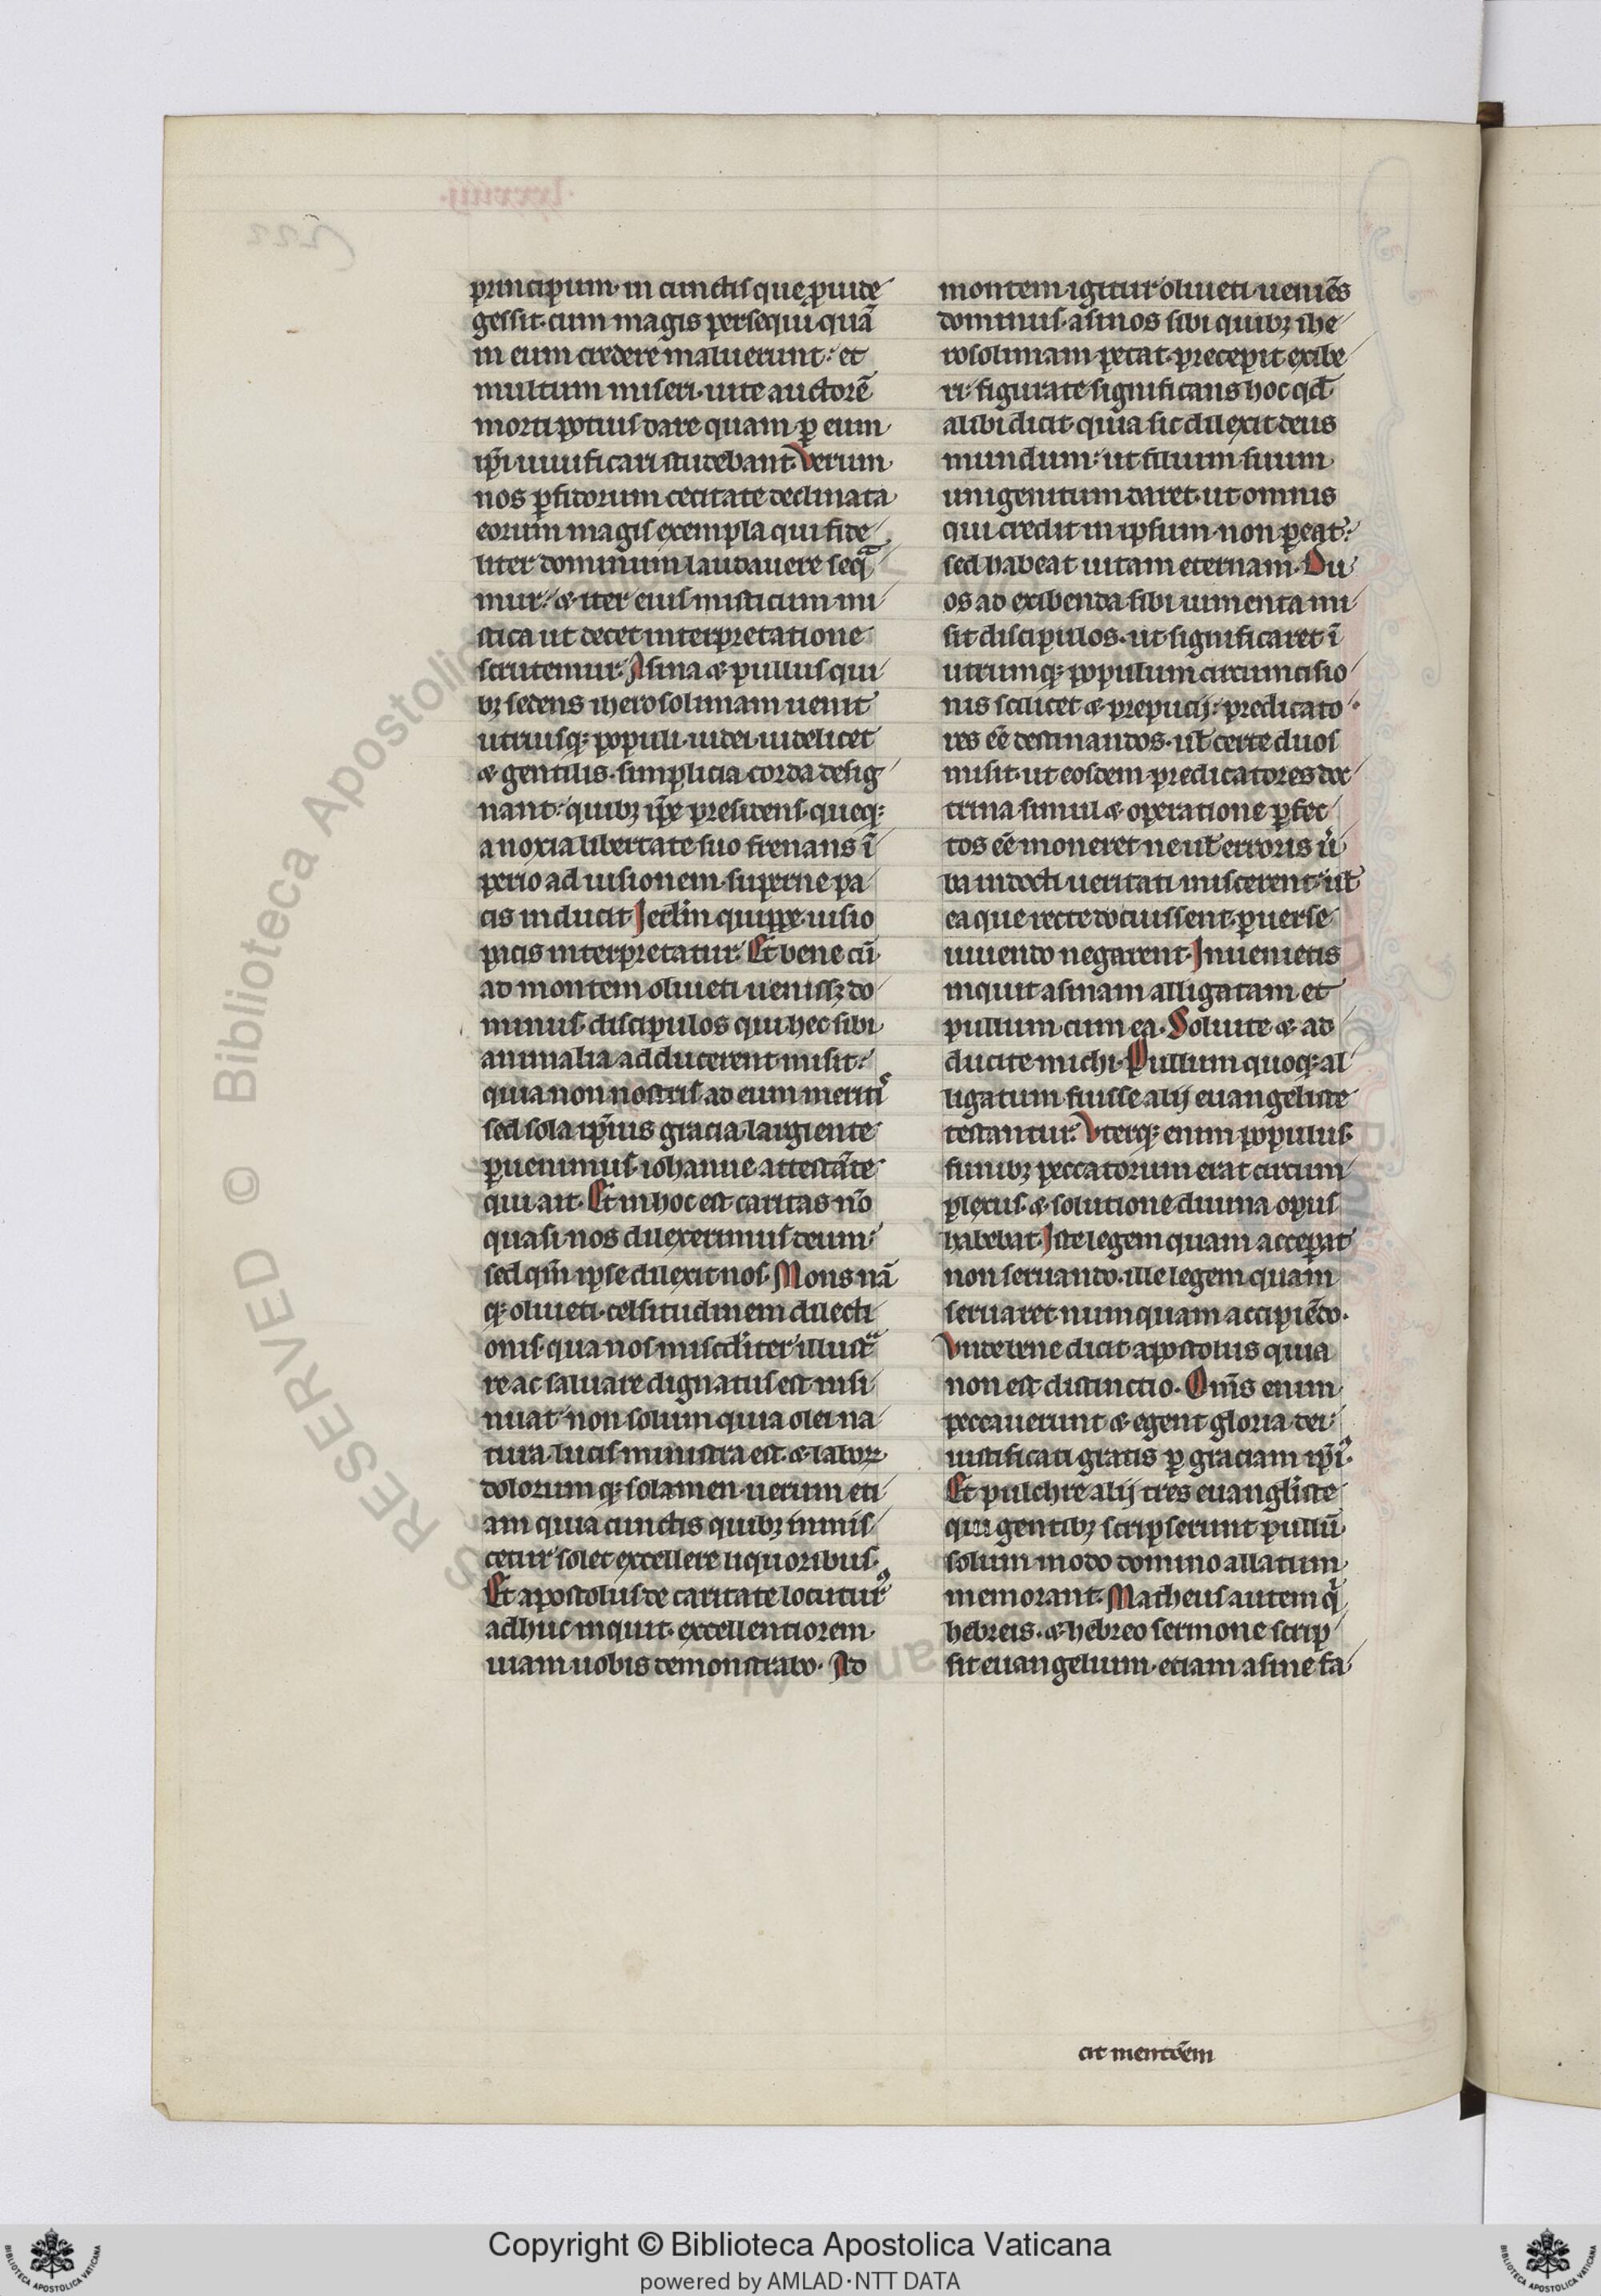 principum· in cunctis que ꝓuide
gessit· cum magis persequi quā
in eum credere maluerunt· et
multum miseri· uite auctorē
morti potius dare quam ꝑ eum
ip̄i uiuificari studebant· Verum
nos ꝑfidorum cecitate declinata
eorum magis exempla qui fide
liter dominum laudauere seqͣ
mur· ⁊ iter eius misticum mi
stica ut decet interpretatione
scrutemur· Asina ⁊ pullus qui
bꝫ sedens iherosolimam uenit
utriusqꝫ populi· iudei· uidelicet
⁊ gentilis· simplicia corda desig
nant· quibꝫ ip̄e presidens· queqꝫ
a noxia libertate suo frenans ī
perio ad uisionem· superne pa
cis inducit Ierl̄m quippe· uisio
pacis interpretatur· Et bene cū
ad montem oliueti uenissꝫ do
minus· discipulos qui hec sibi
animalia adducerent misit·
quia non nostris ad eum meritꝭ
sed sola ip̄ius gracia largiente
ꝑuenimus· iohanne attestāte
qui ait· Et in hoc est caritas nō
quasi nos dilexerimus deum·
sed qm̄ ipse dilexit nos· Mons nā
qꝫ oliueti· celsitudinem dilecti
onis· qua nos misc̄diter illustͣ
re ac saluare dignatus est insi
nuat· non solum quia olei na
tura· lucis ministra est· ⁊ laboꝝ
dolorum qꝫ solamen· uerum eti
am quia cunctis quibꝫ inmis
cetur solet excellere liquoribus·
Et apostolus de caritate locuturꝰ
adhuc inquit· excellentiorem
uiam uobis demonstrabo· Ad
montem igitur oliueti· ueniēs
dominus· asinos sibi quibꝫ ihe
rosolimam petat· precepit exibe
ri· figurate significans hoc qd̄
alibi dicit· quia sic dilexit deus
mundum· ut filium suum
unigenitum daret· ut omnis
qui credit in ipsum· non ꝑeat·
sed habeat uitam eternam· Du
os ad exibenda sibi iumenta mi
sit discipulos· ut significaret ī
utrumqꝫ populum circumcisio
nis scilicet ⁊ prepucij· predicato
res eē destinandos· ul̄ certe duos
misit· ut eosdem predicatores doc
trina simul ⁊ operatione ꝑfec
tos eē moneret ne ul̄ erroris uͥ
ba indocti ueritati miscerent· ul̄
ea que recte docuissent· ꝑuerse
uiuendo negarent· Inuenietis
inquit asinam alligatam et
pullum cum ea· Soluite ⁊ ad
ducite michi· Pullum quoqꝫ al
ligatum fuisse alij euangeliste
testantur· Vterqꝫ enim populus·
funibꝫ peccatorum erat circum
plexus· ⁊ solutione diuina opus
habebat· Iste legem quam acceꝑat
non seruando· ille legem quam
seruaret numquam accipiēdo·
Vnde bene dicit apostolus quia
non est distinctio· Om̄s enim
peccauerunt ⁊ egent gloria dei·
iustificati gratis ꝑ graciam ip̄iꝰ·
Et pulchre alij tres euangl̄iste
qui gentibꝫ scripserunt pullū
solum modo domino allatum
memorant· Matheus autem qͥ
hebreis· ⁊ hebreo sermone scrip
sit euangelium· etiam asine fa
cit mentōem
Copyright © Biblioteca Apostolica Vaticana
powered by AMLAD·NTT DATA